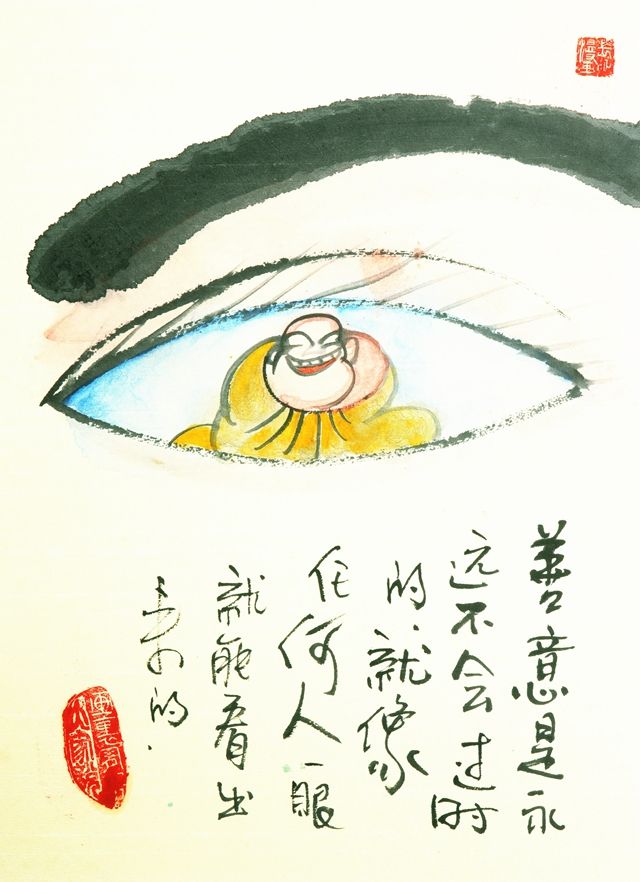 善意是永
远不会过时
的.就像
任何人一眼
就能看出
来的.